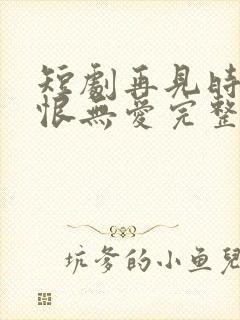 短劇再見時
恨無愛完整
坑爹的小鱼兒